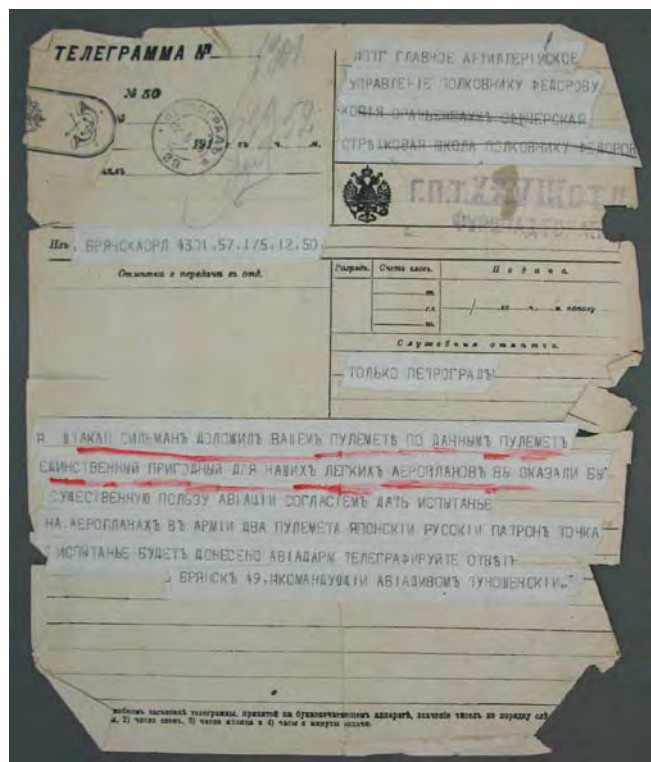 ТЕЛЕГРАММА №
№ 50
ПТГ ГЛАВНОЕ АРТИЛЛЕРІЙСКОЕ
УПРАВЛЕНІЕ ПОЛКОВНИКУ ФЕДОРОВУ
СТРѢЛКОВАЯ ШКОЛА ПОЛКОВНИКУ ФЕДОРОВ
191 г. въ ч. м.
Изъ БРЯНСКАОРЛ 4301.57.175.12.50.
Отмѣтка о передачѣ въ отд.
Разрядъ. Счетъ словъ. Подана.
го ч. м. пополу
Служебныя отмѣтки.
ТОЛЬКО ПЕТРОГРАДЪ
ШТАКАП СИЛЬМАНЪ ДОЛОЖИЛЪ ВАШЕМЪ ПУЛЕМЕТѢ ПО ДАННЫМЪ ПУЛЕМЕТЪ
ЕДИНСТВЕННЫЙ ПРИГОДНЫЙ ДЛЯ НАШИХЪ ЛЕГКИХЪ АЕРОПЛАНОВЪ ВЫ ОКАЗАЛИ БЫ
СУЩЕСТВЕННУЮ ПОЛЬЗУ АВІАЦІИ СОГЛАСІЕМЪ ДАТЬ ИСПЫТАНЬЕ
НА АЕРОПЛАНАХЪ ВЪ АРМІИ ДВА ПУЛЕМЕТА ЯПОНСКІЙ РУССКІЙ ПАТРОНЪ ТОЧКА
ИСПЫТАНЬЕ БУДЕТЪ ДОНЕСЕНО АВІАДАРМ ТЕЛЕГРАФИРУЙТЕ ОТВѢТЪ
БРЯНСКЪ 49, КОМАНДУЮЩІЙ АВІАДИВОМЪ ТУНОШЕНСКІЙ
телеграммы, принятой на буквопечатающемъ аппаратѣ, значенія чиселъ по порядку слѣ
2) число словъ, 3) число мѣсяца и 4) часы и минуты подачи.